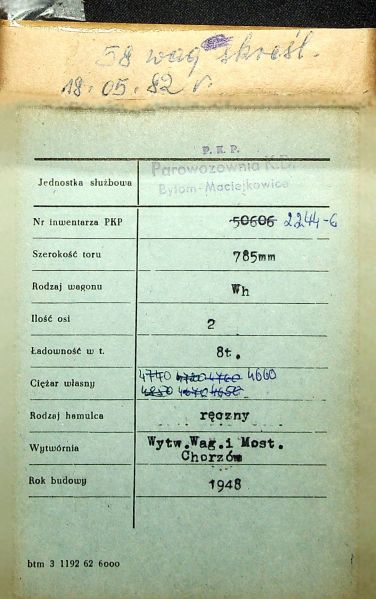 58 wag skreśl.
18.05.82 r.
P. K. P.
Parowozownia K.D.
Jednostka służbowa Bytom-Maciejkowice
Nr inwentarza PKP 50606 2244-6
Szerokość toru 785mm
Rodzaj wagonu Wh
Ilość osi 2
Ładowność w t. 8t.
4740 4720 4760 4660
Ciężar własny
4830 4670 4650
Rodzaj hamulca ręczny
Wytw.Wag.i Most.
Wytwórnia
Chorzów
Rok budowy 1948
btm 3 1192 62 6000